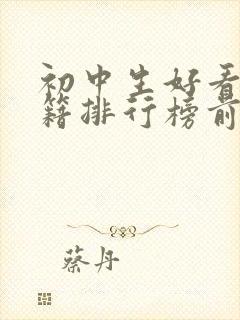 初中生好看
籍排行榜前
蔡丹